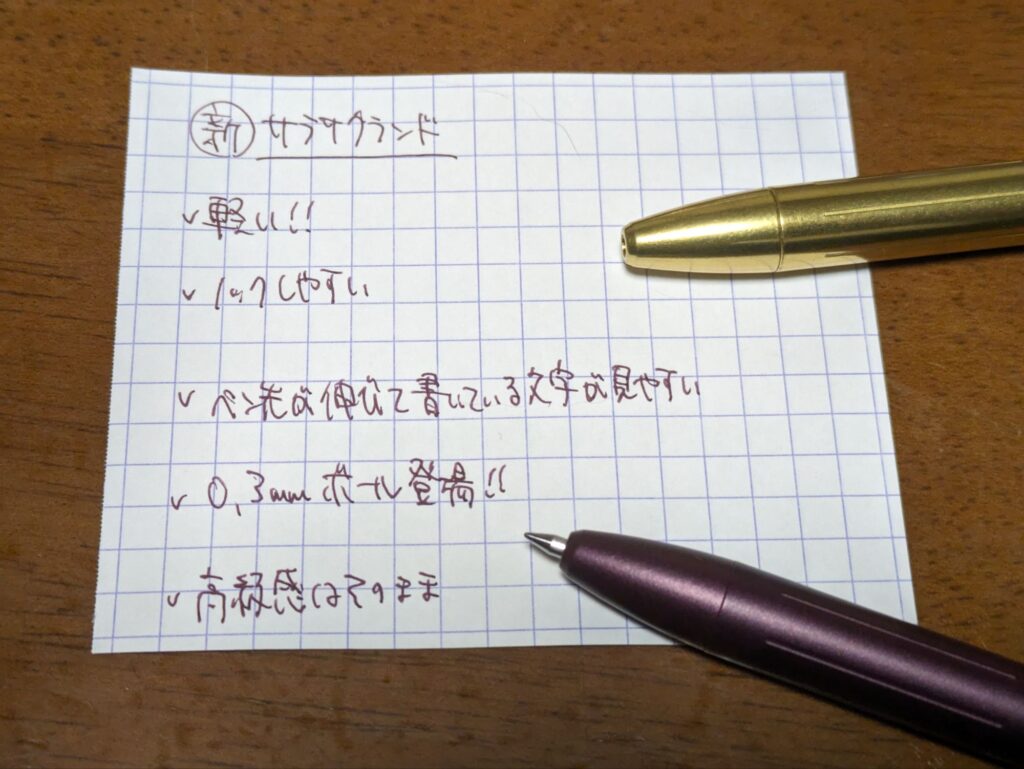 ㊟新 サラサグランド
✓軽い!!
✓ノックしやすい
✓ペン先が伸びて書いている文字が見やすい
✓0.3mmボール登場!!
✓高級感はそのまま